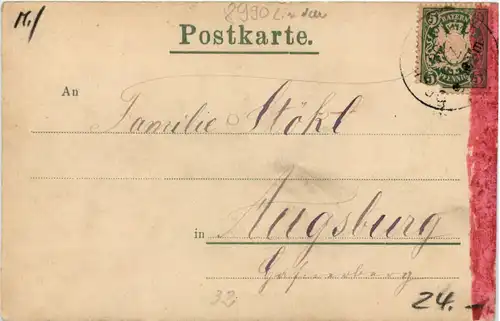 8990 Lindau
Postkarte.
BAYERN
5 5
PFENNIG
An
Familie Stökl
in Augsburg
32
24.-